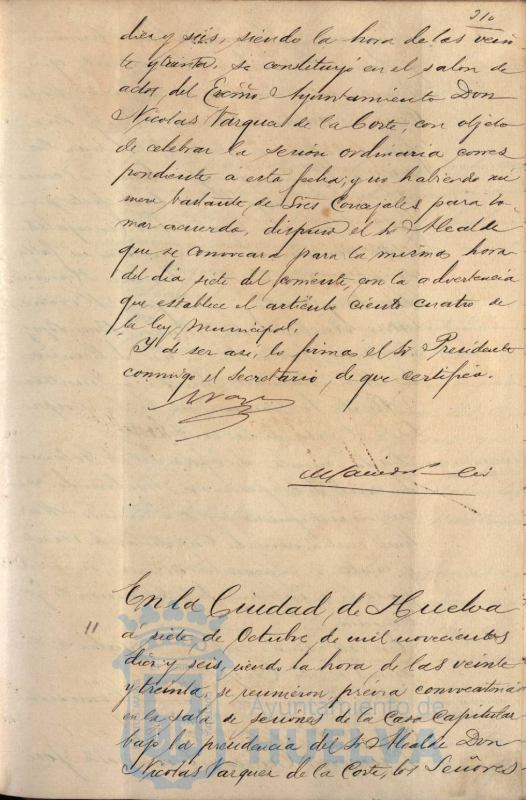 210
diez y seis, siendo la hora de las vein
te y treinta, se constituyó en el salon de
actos del Excmo. Ayuntamiento Don
Nicolas Vazquez de la Corte, con objeto
de celebrar la sesion ordinaria corres
pondiente á esta fecha; y no habiendo nú
mero bastante de Sres Concejales para to
mar acuerdo, dispuso el Sr Alcalde
que se convocara para la misma hora
del dia siete del corriente, con la advertencia
que establece el artículo ciento cuatro de
la ley Municipal.
Y de ser así, lo firma el Sr Presidente
conmigo el secretario, de que certifico.
En la Ciudad de Huelva
11
á siete de Octubre de mil novecientos
diez y seis, siendo la hora de las veinte
y treinta, se reunieron, previa convocatoria
en la sala de sesiones de la Casa Capitular
bajo la presidencia del Sr Alcalde Don
Nicolas Vazquez de la Corte, los Señores
Ayuntamiento de
HUELVA